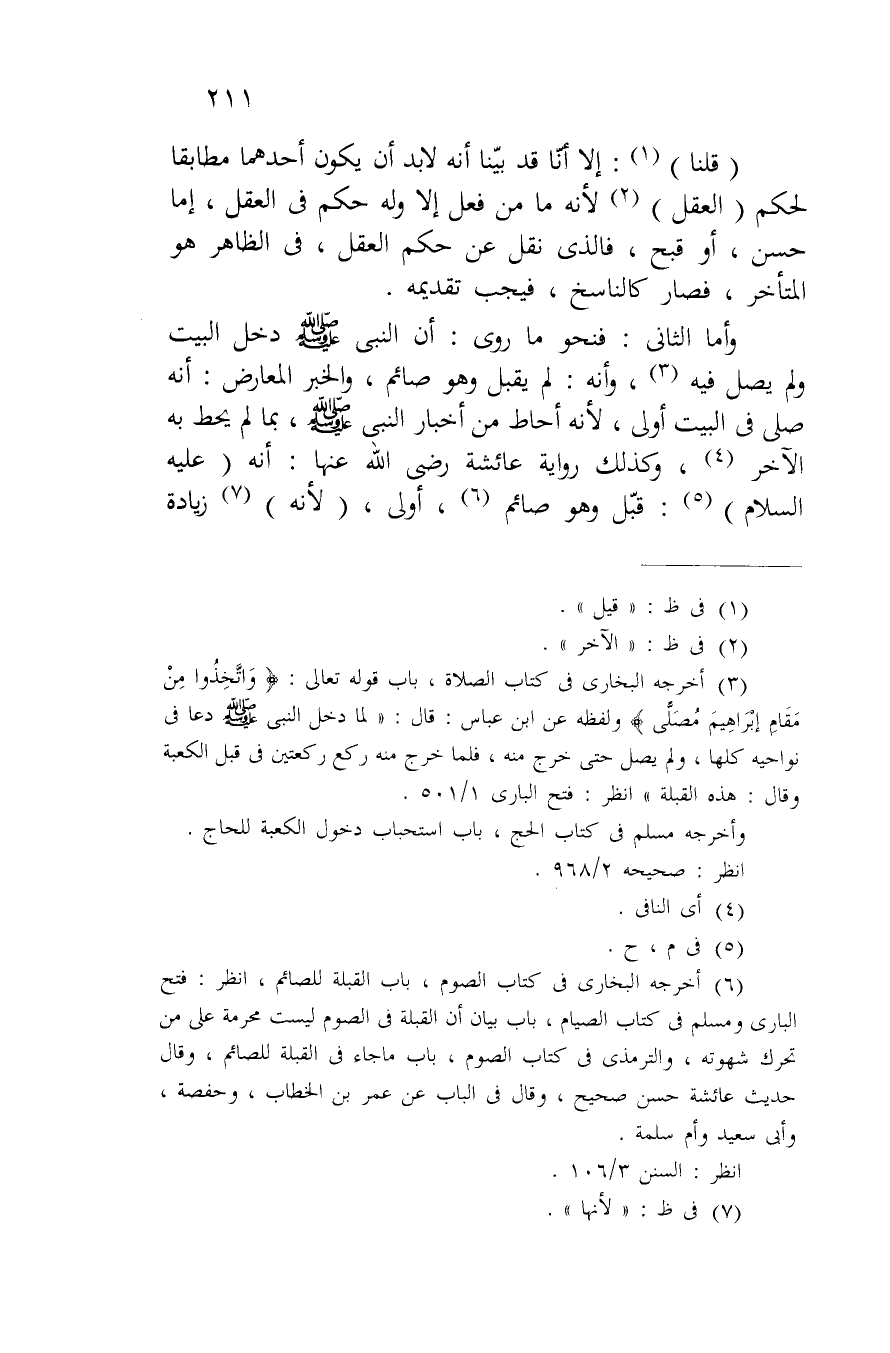 ٢١١
( قلنا ) (١) : إلا أنّا قد بيّنا أنه لابد أن يكون أحدهما مطابقا
لحكم ( العقل ) (٢) لأنه ما من فعل إلا وله حكم فى العقل ، إما
حسن ، أو قبح ، فالذى نقل عن حكم العقل ، فى الظاهر هو
المتأخر ، فصار كالناسخ ، فيجب تقديمه .
وأما الثانى : فنحو ما روى : أن النبى ﷺ دخل البيت
ولم يصل فيه (٣) ، وأنه : لم يقبل وهو صائم ، والخبر المعارض : أنه
صلى فى البيت أولى ، لأنه أحاط من أخبار النبى ﷺ ، بما لم يحط به
الآخر (٤) ، وكذلك رواية عائشة رضى الله عنها : أنه ( عليه
السلام ) (٥) : قبّل وهو صائم (٦) ، أولى ، ( لأنه ) (٧) زيادة
(١) فى ظ : « قيل » .
(٢) فى ظ : « الآخر » .
(٣) أخرجه البخارى فى كتاب الصلاة ، باب قوله تعالى : ﴿ وَاتَّخِذُوا مِنْ
مَقَامِ إبْرَاهِيمَ مُصَلًّى ﴾ ولفظه عن ابن عباس : قال : « لما دخل النبى ﷺ دعا فى
نواحيه كلها ، ولم يصل حتى خرج منه ، فلما خرج منه ركع ركعتين فى قبل الكعبة
وقال : هذه القبلة » انظر : فتح البارى ٥٠١/١ .
وأخرجه مسلم فى كتاب الحج ، باب استحباب دخول الكعبة للحاج .
انظر : صحيحه ٩٦٨/٢ .
(٤) أى النافى .
(٥) فى م ، ح .
(٦) أخرجه البخارى فى كتاب الصوم ، باب القبلة للصائم ، انظر : فتح
البارى ومسلم فى كتاب الصيام ، باب بيان أن القبلة فى الصوم ليست محرمة على من
تحرك شهوته ، والترمذى فى كتاب الصوم ، باب ماجاء فى القبلة للصائم ، وقال
حديث عائشة حسن صحيح ، وقال فى الباب عن عمر بن الخطاب ، وحفصة ،
وأبى سعيد وأم سلمة .
انظر : السنن ١٠٦/٣ .
(٧) فى ظ : « لأنها » .